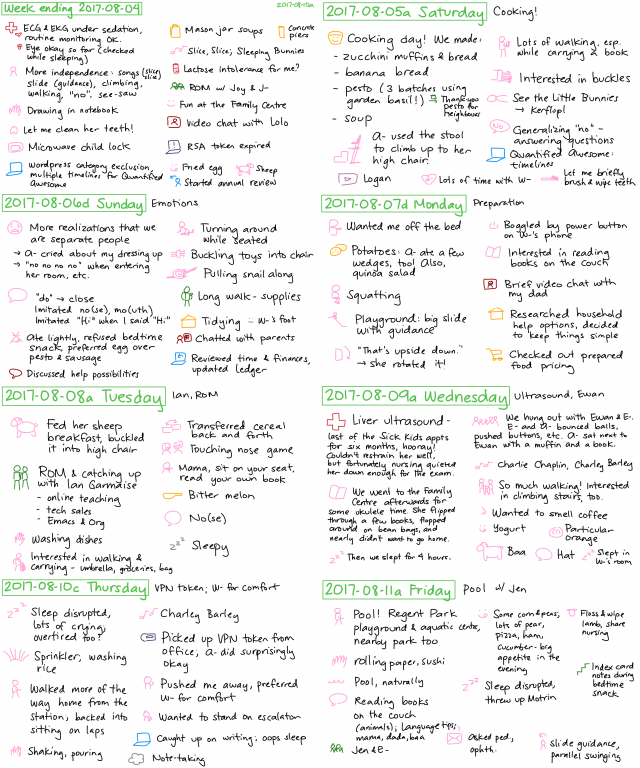 Week ending 2017-08-04
2017-08-10a
ECG & EKG under sedation,
routine monitoring OK.
Eye okay so far (checked
while sleeping)
More independence: songs (slice, slice)
slide (guidance), climbing,
walking, "no", see-saw
Drawing in notebook
Let me clean her teeth!
Microwave child lock
Wordpress category exclusion,
multiple timelines for Quantified
Awesome
Mason jar soups
Concrete
piers
Slice, Slice; Sleeping Bunnies
Lactose intolerance for me?
ROM w/ Joy & J-
Fun at the Family Centre
Video chat with Lolo
RSA token expired
Fried egg
Sheep
Started annual review
2017-08-05a Saturday Cooking!
Cooking day! We made:
- zucchini muffins & bread
- banana bread
- pesto (3 batches using
garden basil!)
- soup
Thank-you
pesto for
neighbours
A- used the stool
to climb up to her
high chair.
Logan
Lots of time with W-
Lots of walking, esp.
while carrying a book
Interested in buckles
See the Little Bunnies
→ kerflop!
Generalizing "no" -
answering questions
Quantified Awesome:
timelines
Let me briefly
brush & wipe teeth
2017-08-06d Sunday Emotions
More realizations that we
are separate people
→ A- cried about my dressing up
→ "no no no no" when entering
her room, etc.
"do" → close
Imitated no(se), mo(uth)
Imitated "Hi" when I said "Hi"
Ate lightly, refused bedtime
snack, preferred egg over
pesto & sausage
Discussed help possibilities
Turning around
while seated
Buckling toys into chair
Pulling snail along
Long walk - supplies
Tidying - W-'s foot
Chatted with parents
Reviewed time & finances,
updated ledger
2017-08-07d Monday Preparation
Wanted me off the bed
Potatoes: A- ate a few
wedges, too! Also,
quinoa salad
Squatting
Playground: big slide
with guidance
"That's upside down."
→ she rotated it!
Boggled by power button
on W-'s phone
Interested in reading
books on the couch
Brief video chat with
my dad
Researched household
help options, decided
to keep things simple
Checked out prepared
food pricing
2017-08-08a Tuesday Ian, ROM
Fed her sheep
breakfast, buckled
it into high chair
ROM & catching up
with Ian Garmaise
- online teaching
- tech sales
- Emacs & Org
Washing dishes
Interested in walking &
carrying - umbrella, groceries, bag
Transferred cereal
back and forth
Touching nose game
Mama, sit on your seat,
read your own book
Bitter melon
No(se)
Sleepy
2017-08-09a Wednesday Ultrasound, Ewan
Liver ultrasound -
last of the Sick Kids appts
for six months, hooray!
Couldn't restrain her well,
but fortunately nursing quieted
her down enough for the exam.
We went to the Family
Centre afterwards for
some ukulele time. She flipped
through a few books, flopped
around on bean bags, and
nearly didn't want to go home.
Then we slept for 4 hours.
We hung out with Ewan & E-.
E- and A- bounced balls,
pushed buttons, etc. A- sat next to
Ewan with a muffin and a book.
Charlie Chaplin, Charley Barley
So much walking! Interested
in climbing stairs, too.
Wanted to smell coffee
Yogurt
Particular -
orange
Baa
Hat
Slept in
W-'s room
2017-08-10c Thursday VPN token; W- for comfort
Sleep disrupted,
lots of crying;
overtired too?
Sprinkler; washing
rice
Walked more of the
way home from the
station; backed into
sitting on laps
Shaking, pouring
Charley Barley
Picked up VPN token from
office; A- did surprisingly
okay
Pushed me away, preferred
W- for comfort
Wanted to stand on escalator
Caught up on writing; oops sleep
Note-taking
2017-08-11a Friday Pool w/ Jen
Pool! Regent Park
playground & aquatic centre,
nearby park too
rolling paper, sushi
Pool, naturally
Reading books
on the couch
(animals); Language tips;
mama, dada, baa
Jen & E-
Some corn & peas,
lots of pear,
pizza, ham,
cucumber - big
appetite in the
evening
Sleep disrupted,
threw up Motrin
Asked ped.,
ophth.
Floss & wipe
lamb, share
nursing
Index card
notes during
bedtime
snack
Slide guidance,
parallel swinging